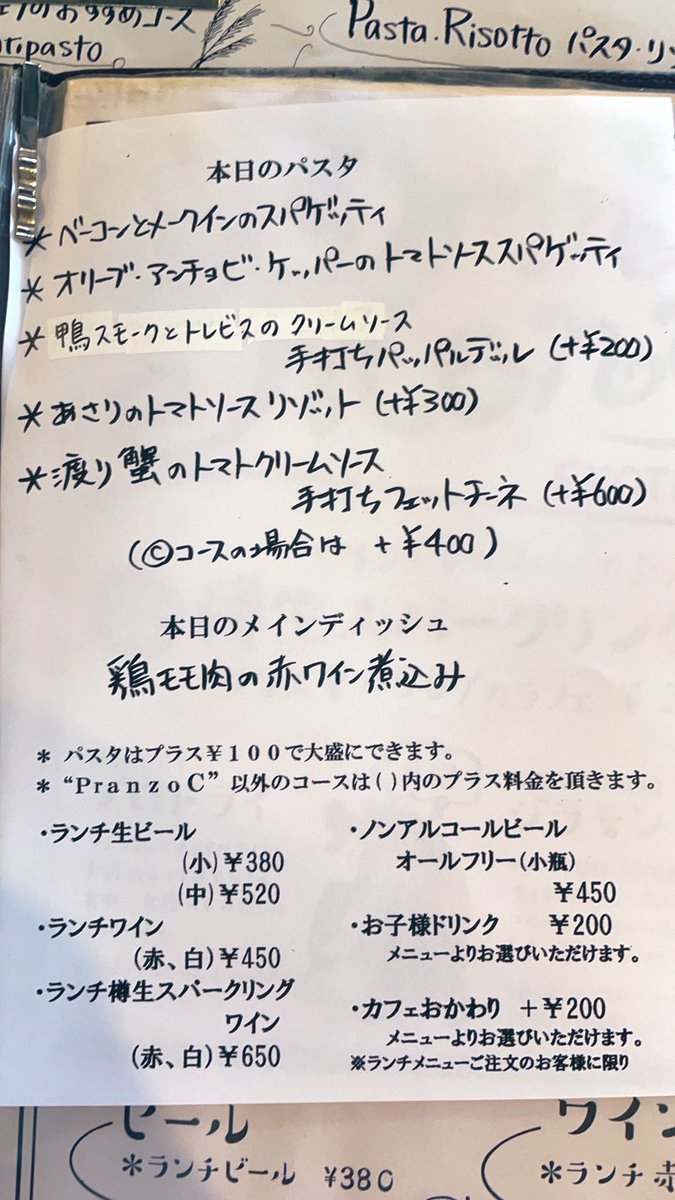 のおすすめコース
Pasta.Risotto パスタ・リ
tipasto
本日のパスタ
* ベーコンとメークインのスパゲッティ
* オリーブ・アンチョビ・ケッパーのトマトソーススパゲッティ
* 鴨スモークとトレビスの クリームソース
手打ちパッパルデッレ (+¥200)
* あさりのトマトソースリゾット (+¥300)
* 渡り蟹のトマトクリームソース
手打ちフェットチーネ (+¥600)
(©コースの場合は +¥400)
本日のメインディッシュ
鶏モモ肉の赤ワイン煮込み
* パスタはプラス¥100で大盛にできます。
* “PranzoC” 以外のコースは( )内のプラス料金を頂きます。
・ランチ生ビール
(小)¥380
(中)¥520
・ランチワイン
(赤、白)¥450
・ランチ樽生スパークリング
ワイン
(赤、白)¥650
・ノンアルコールビール
オールフリー(小瓶)
¥450
・お子様ドリンク ¥200
メニューよりお選びいただけます。
・カフェおかわり +¥200
メニューよりお選びいただけます。
※ランチメニューご注文のお客様に限り
ビール
*ランチビール ¥380
ワイン
*ランチ 赤